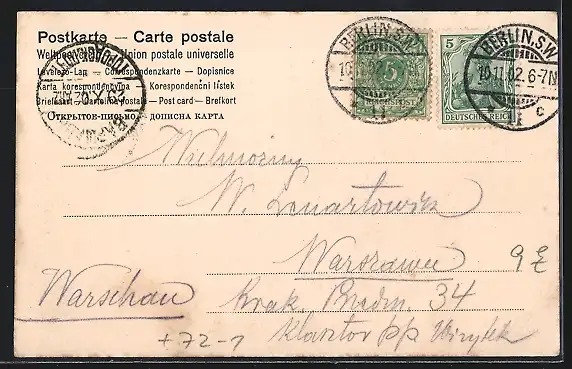 Postkarte — Carte postale
Weltpostverein — Union postale universelle
Levelező-Lap — Correspondenzkarte — Dopisnice
Karta korespondencyjna — Korespondenční lístek
Briefkaart — Cartolina postale — Post card — Brefkort
Открытое письмо — дописна карта
BERLIN.S.W.
10.11.02
5
REICHSPOST
5
DEUTSCHES REICH
BERLIN.S.W.
10.11.02.6-7N.
c
Wielmożny
W. Lenartowicz
Warszawa
Warschau
Krak. Przdm. 34
Klasztor pp Wizytek
+72-1